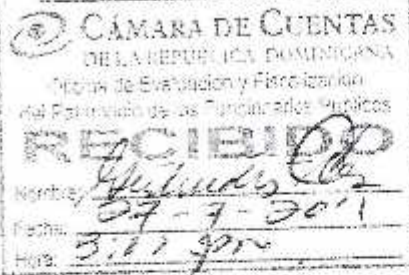 CÁMARA DE CUENTAS
DE LA REPÚBLICA DOMINICANA
Oficina de Evaluación y Fiscalización
del Patrimonio de los Funcionarios Públicos
RECIBIDO
Nombre:
Fecha: 27-7-2011
Hora: